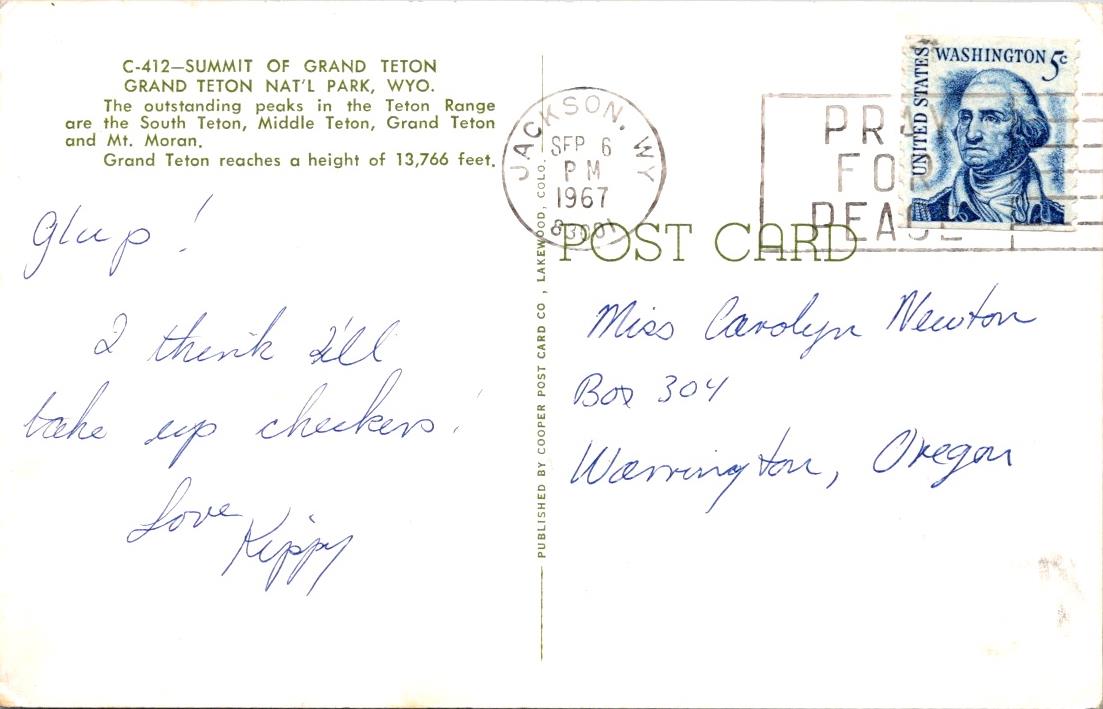 C-412—SUMMIT OF GRAND TETON
GRAND TETON NAT'L PARK, WYO.
The outstanding peaks in the Teton Range
are the South Teton, Middle Teton, Grand Teton
and Mt. Moran.
Grand Teton reaches a height of 13,766 feet.
Glup!
I think I'll
take up checkers!
Love
Kippy
PUBLISHED BY COOPER POST CARD CO., LAKEWOOD, COLO.
JACKSON, WY
SEP 6
PM
1967
83001
PRAY
FOR
PEACE
UNITED STATES
WASHINGTON 5c
POST CARD
Miss Carolyn Newton
Box 304
Warrington, Oregon